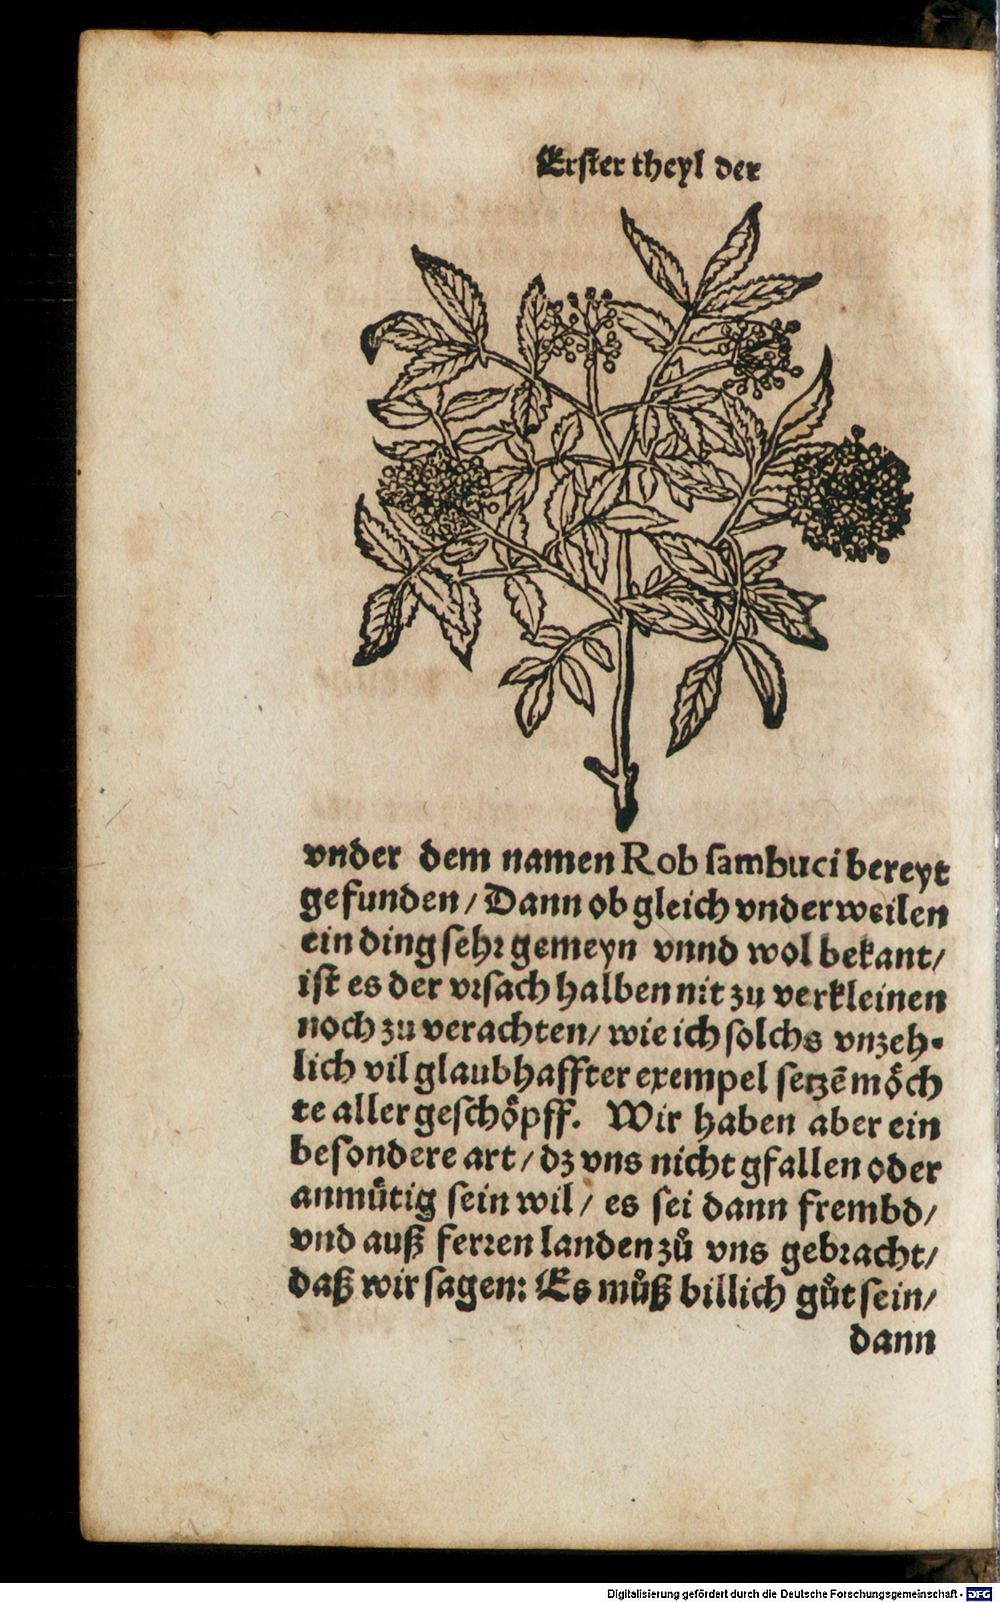 Erster theyl der
vnder dem namen Rob sambuci bereyt
gefunden / Dann ob gleich vnderweilen
ein ding sehr gemeyn vnnd wol bekant /
ist es der vrsach halben nit zu verkleinen
noch zu verachten / wie ich solchs vnzeh-
lich vil glaubhaffter exempel setzē mȯ̈ch
te aller geschöpff. Wir haben aber ein
besondere art / dz vns nicht gfallen oder
anmütig sein wil / es sei dann frembd /
vnd auß ferren landen zů vns gebracht /
daß wir sagen: Es můß billich gůt sein /
dann
Digitalisierung gefördert durch die Deutsche Forschungsgemeinschaft - DFG